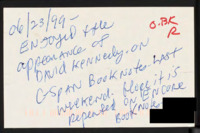 06/23/99-
O.BK
R
ENJOYED the
appearance of
DAVID KENNEDY. ON
C-SPAN BOOKNOTES. LAST
WEEKEND. Hope it is
repeated ON ENCORE
BOOKNOTES